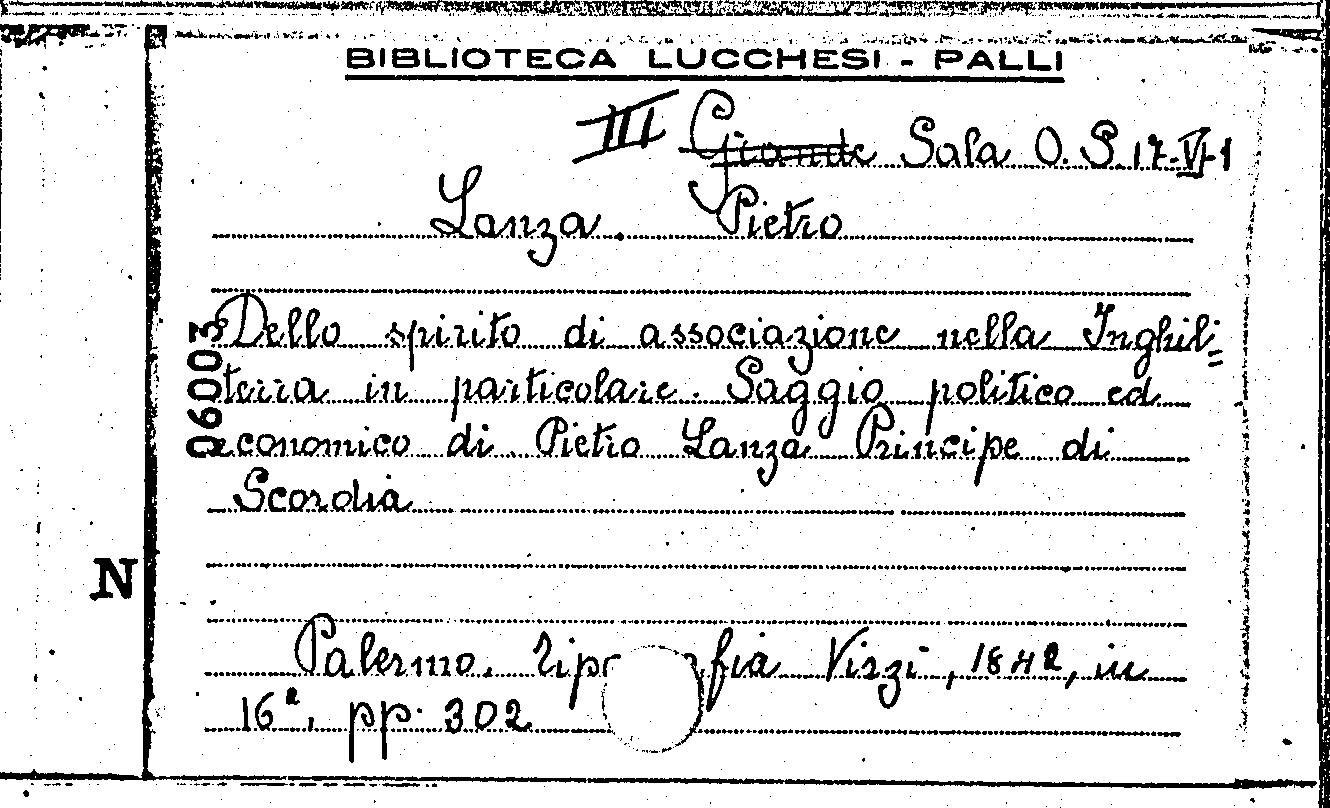 BIBLIOTECA LUCCHESI - PALLI
III Grande Sala O. S. 17-VI-1
Lanza. Pietro
Dello spirito di associazione nella Inghil=
terra in particolare. Saggio politico ed
economico di Pietro Lanza Principe di
Scordia
06003
N
Palermo. Tipografia Virzi, 1842, in
16º. pp. 302